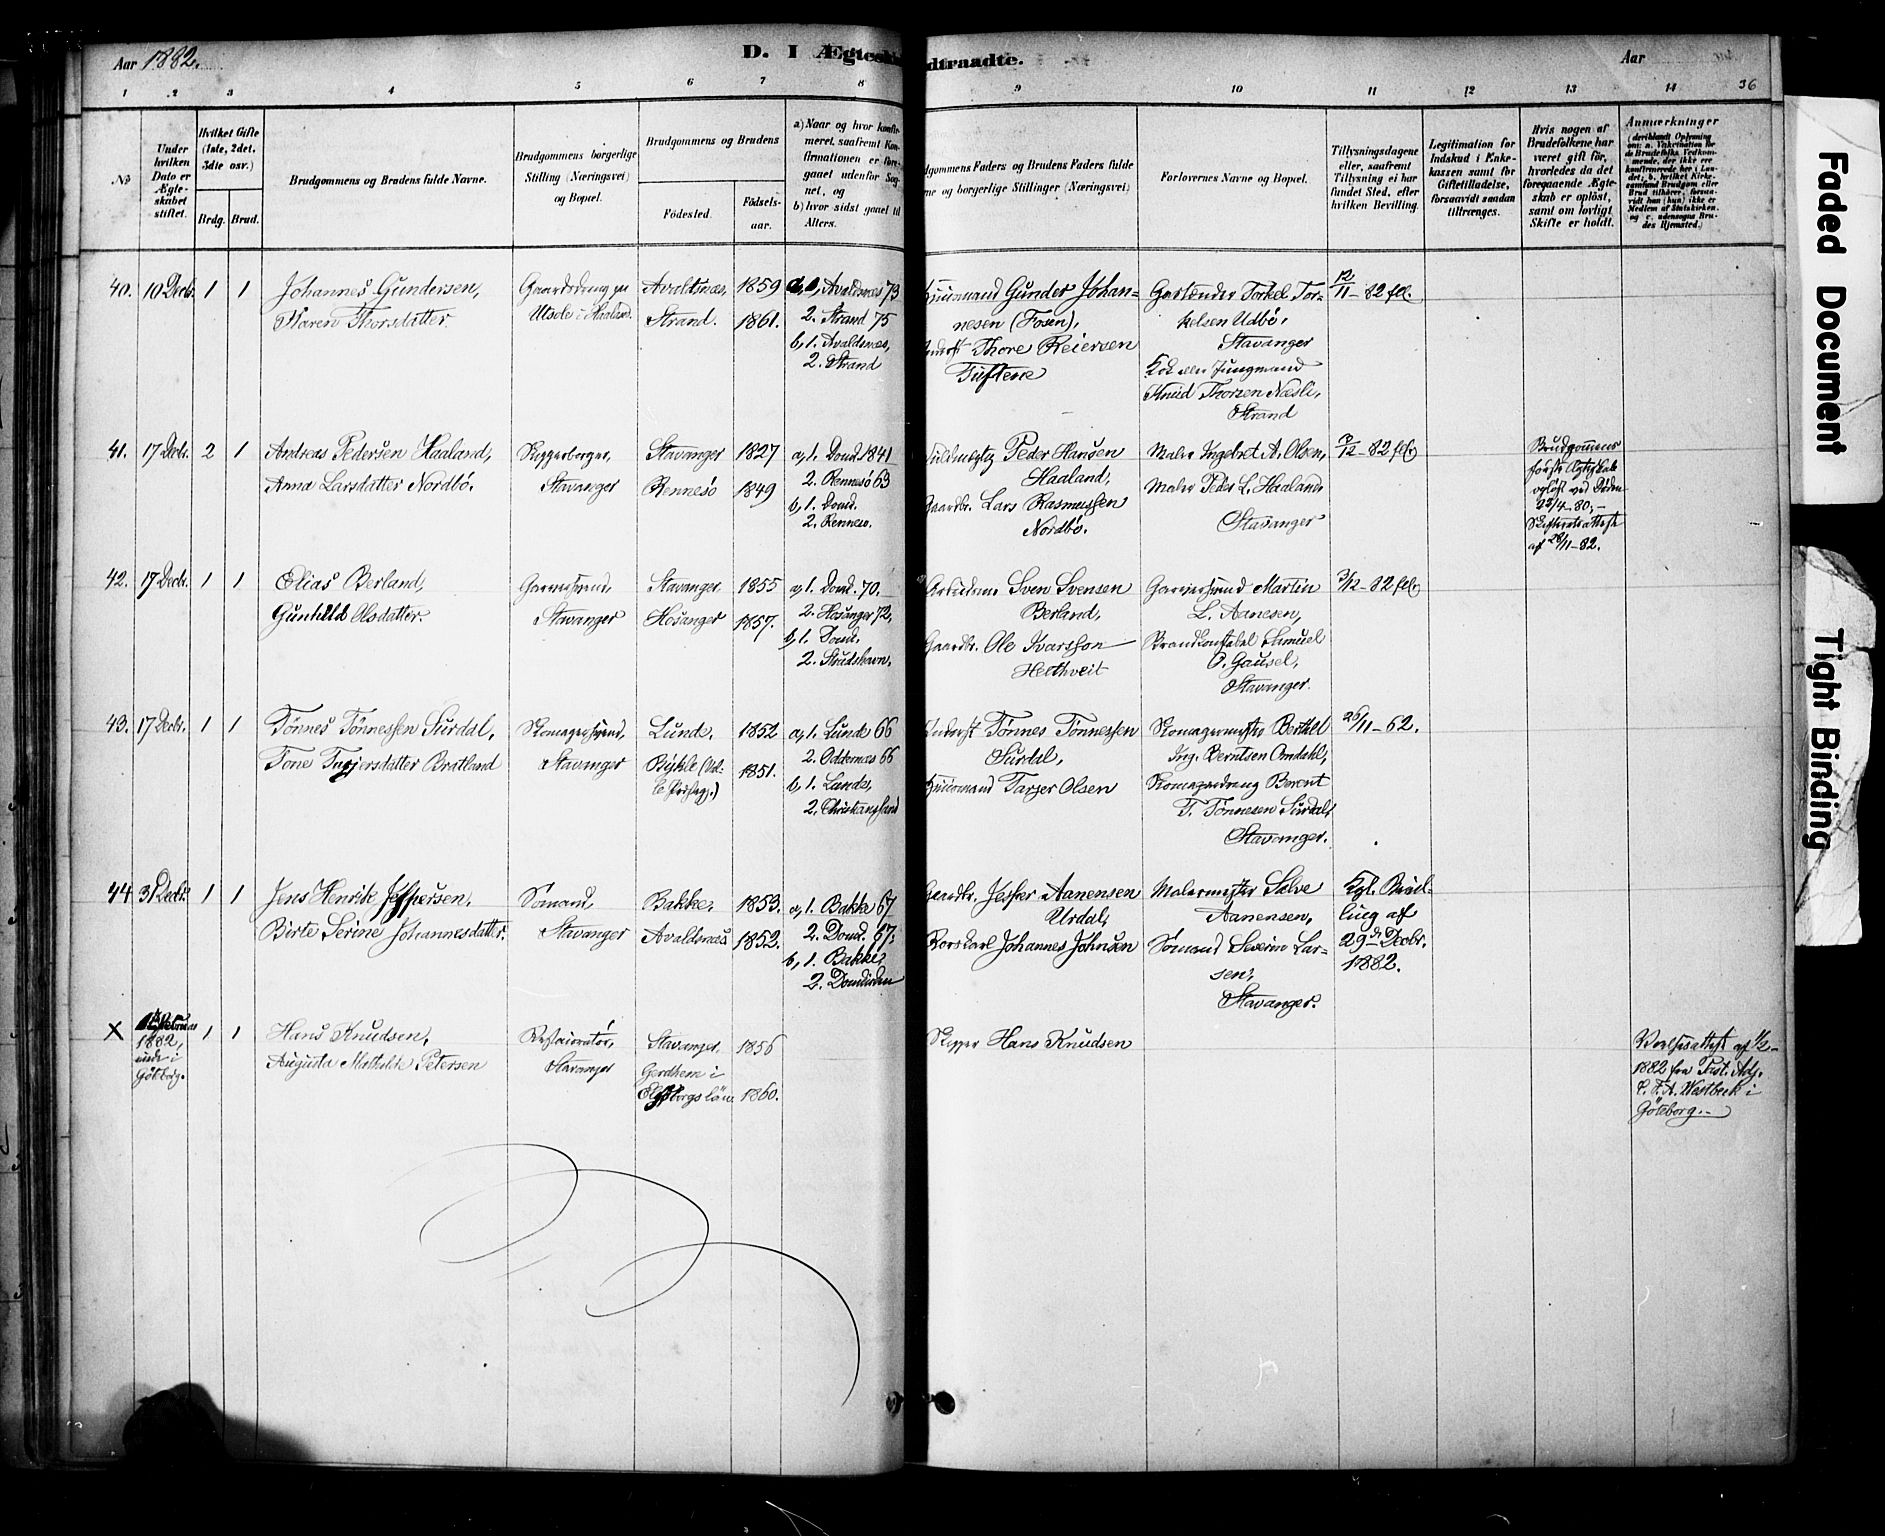 Aar 1882.
D. I Ægtesk
dtraadte.
Aar
1 2 3 4 5 6 7 8 9 10 11 12 13 14 36
No
Under hvilken Dato er Ægteskabet stiftet.
Hvilket Gifte (1ste, 2det, 3die osv.)
Brdg. Brud.
Brudgommens og Brudens fulde Navne.
Brudgommens borgerlige Stilling (Næringsvei) og Bopæl.
Brudgommens og Brudens
Fødested.
Fødselsaar.
a) Naar og hvor konfirmeret, saafremt Konfirmationen er foregaaet udenfor Sognet, og
b) hvor sidst gaaet til Alters.
dgommens Faders og Brudens Faders fulde
ne og borgerlige Stillinger (Næringsvei)
Forlovernes Navne og Bopæl.
Tillysningsdagene eller, saafremt Tillysning ei har fundet Sted, efter hvilken Bevilling.
Legitimation for Indskud i Enkekassen samt for Giftetilladelse, forsaavidt saadan tiltrænges.
Hvis nogen af Brudefolkene har været gift før, hvorledes da det foregaaende Ægteskab er opløst, samt om lovligt Skifte er holdt.
Anmærkninger
40. 10 Decb. 1 1
Johannes Gundersen,
Karen Thorsdatter.
Gaardsdreng paa
Utsole i Haaland.
Avaldsnæs, 1859
Strand. 1861.
a, 1. Avaldsnæs 73
2. Strand 75
b, 1. Avaldsnæs,
2. Strand
Huusmand Gunder Johan-
nesen (Fosen),
Thore Reiersen
Tuftene
Gartender Torkel Tor-
kelsen Udbø,
Stavanger
Jungmand
Knud Thorsen Næsli,
Strand
12/11 - 82 flg.
41. 17 Decb. 2 1
Andreas Pedersen Haaland,
Anna Larsdatter Nordbø.
Byggeborger,
Stavanger
Stavanger 1827
Rennesø 1849
a, 1. Domk 1841
2. Rennesø 63
b, 1. Domk.
2. Rennesø.
Fuldmægtig Peder Hansen
Haaland,
Gaardbr. Lars Rasmussen
Nordbø.
Maler Ingebret A. Olsen,
Maler Peder L. Haaland,
Stavanger
3/12 - 82 flg.
Brudgommens
første Ægteskab
opløst ved Døden
23/4 - 80,-
Skifteretsattest
af 28/11 - 82.
42. 17 Decbr. 1 1
Elias Berland,
Gunhild Olsdatter.
Garversvend,
Stavanger
Stavanger 1855
Hosanger 1857.
a, 1. Domk. 70.
2. Hosanger 72,
b, 1. Domk.
2. Skudshavn,
Arbeidsm. Sven Svensen
Berland,
Gaardbr. Ole Ivarsson
Helthveit
Garversvend Martin
L. Aanesen,
Brandkonstabel Samuel
O. Gausel,
Stavanger.
3/12 - 82 flg.
43. 17 Decbr. 1 1
Tønnes Tønnessen Surdal,
Tone Tarjersdatter Bratland
Skomagersvend,
Stavanger
Lunde, 1852
Bykle 1851.
a, 1. Lunde 66
2. Oddernæs 66
b, 1. Lunde,
2. Christianssand
Inderst Tønnes Tønnessen
Surdal,
Huusmand Tarjer Olsen
Skomagermester Berthel
Ing. Berntsen Omdahl,
Skomagerdreng Berent
T. Tønnesen Surdal,
Stavanger.
26/11 - 62.
44 31 Decbr. 1 1
Jens Henrik Jespersen,
Birte Serine Johannesdatter.
Sømand,
Stavanger
Bakke, 1853.
Avaldsnæs 1852.
a, 1. Bakke 67
2. Domk. 67.
b, 1. Bakke,
2. Domkirken
Gaardbr. Jesper Aanensen
Urdal,
Borskarl Johannes Johnsen
Malermester Salve
Aanensen,
Sømand Severin Lar-
sen,
Stavanger.
Kgl. Bevil-
ling af
29de Decbr.
1882.
X
1882,
viede i
Göteborg.
1 1
Hans Knudsen,
Augusta Mathilde Petersen
Restauratør,
Stavanger
Stavanger, 1856
Gerdhem i
Elfsborgs län 1860.
Skipper Hans Knudsen
Vielsesattest af 1/2 -
1882 fra Past. Adj.
C. F. A. Westbeck i
Göteborg.-
Faded Document
Tight Binding